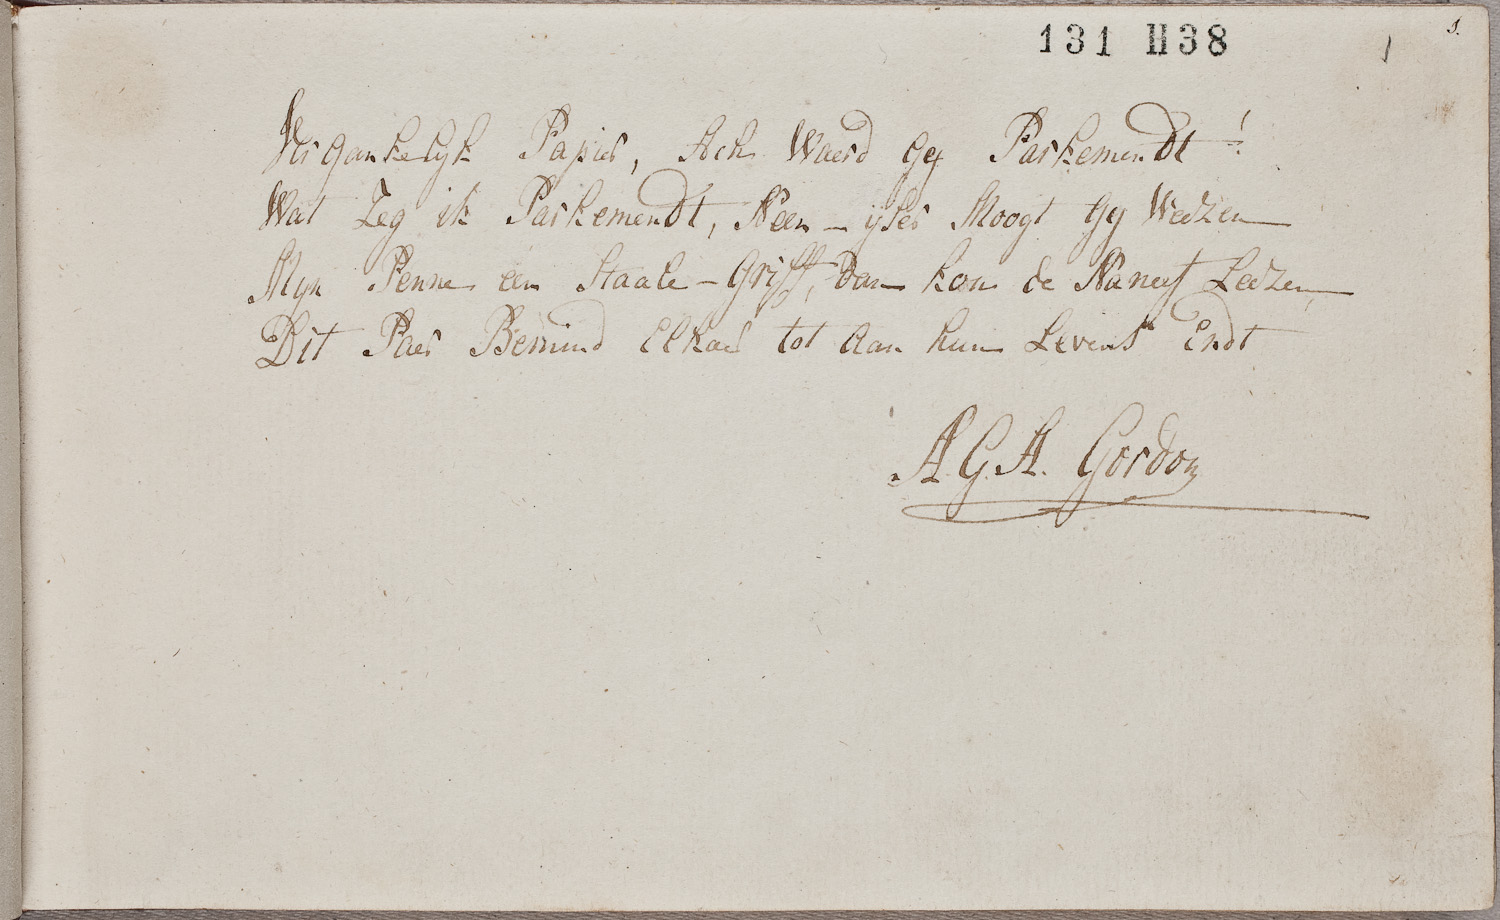 131 H38
1
1.
Vergankelyk Papier, Ach Waerd Gy Parkemendt!
Wat Zeg ik Parkemendt, Neen – yser Moogt Gy Weezen
Myn Penne een Staale – Griff, Dan kon de Naneef Leezen,
Dit Paer Bemind Elkaer tot Aan hun Levens Endt
A. G. A. Gordon